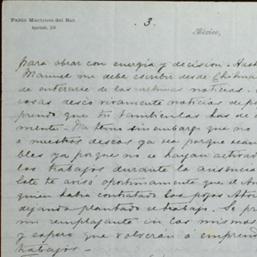 Pablo Martínez del Rio
Apartado, 259
3.
México,
para obrar con energía y decisión.
Manuel me debe escribir desde Chihua
de enterarse de las últimas noticias.
cosas deseo vivamente noticias de
prendo que tu tambien las has de
mente. No temo sin embargo que no
a nuestros deseos ya sea porque sean
bles ya porque no se hayan activad
los trabajos durante la ausencia
Este te avisó oportunamente que el
quien había contratado los pozos
dejando plantado el trabajo. Le
un remplazante en los mismos
y espero que volverán a empren
trabajos